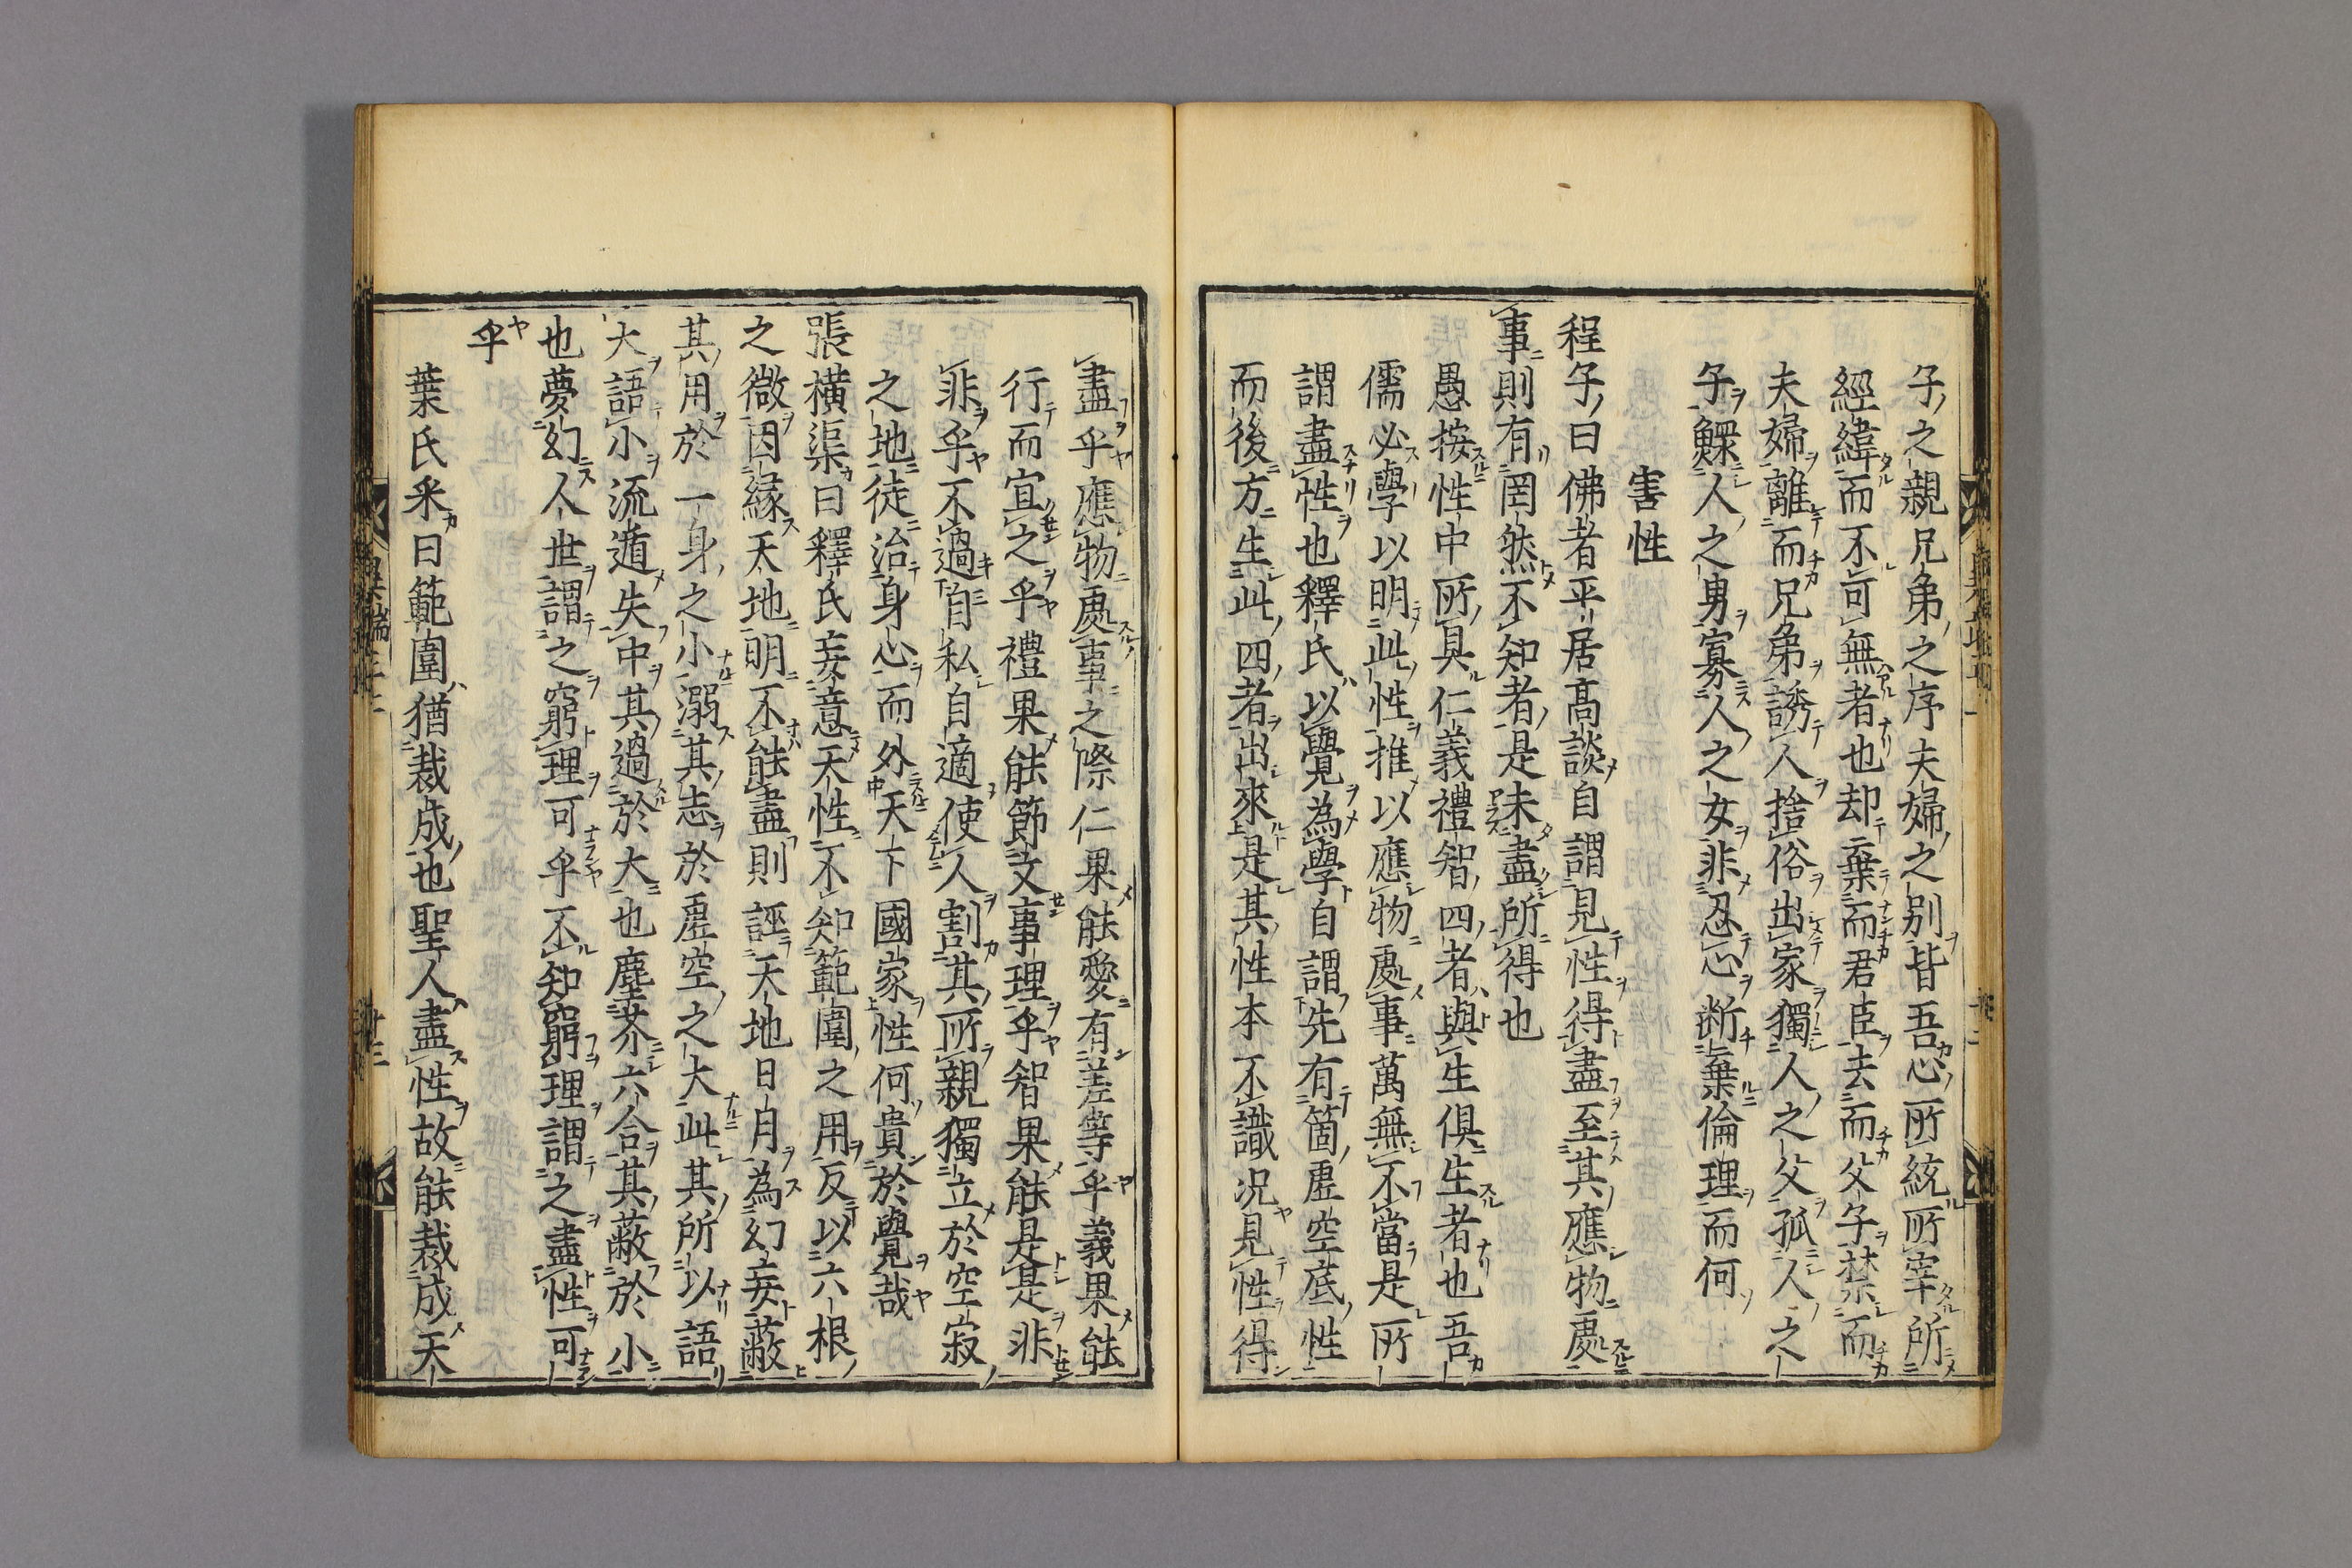 子之親兄弟之序夫婦之别皆吾心所統所宰所
經緯而不可無者也却棄而君臣去而父子禁而
夫婦離而兄弟誘人捨俗出家獨人之父孤人之
子鰥人之男寡人之女非忍心断棄倫理而何
害性
程子曰佛者平居髙談自謂見性得盡至其應物處
事則有罔然不知者是未盡所得也
愚按性中所具仁義禮智四者與生俱生者也吾
儒必學以明此性推以應物處事萬無不當是所
謂盡性也釋氏以覺為學自謂先有箇虚空底性
而後方生此四者出來是其性本不識况見性得
盡乎應物處事之際仁果能愛有差等乎義果能
行而宜之乎禮果能節文事理乎智果能是是非
非乎不過自私自適使人割其所親獨立於空寂
之地徒治身心而外天下國家性何貴於覺哉
張横渠曰釋氏妄意天性不知範圍之用反以六根
之微因縁天地明不能盡則誣天地日月為幻妄蔽
其用於一身之小溺其志於虚空之大此其所以語
大語小流遁失中其過於大也塵芥六合其蔽於小
也夢幻人世謂之窮理可乎不知窮理謂之盡性可
乎
葉氏采曰範圍猶裁成也聖人盡性故能裁成天